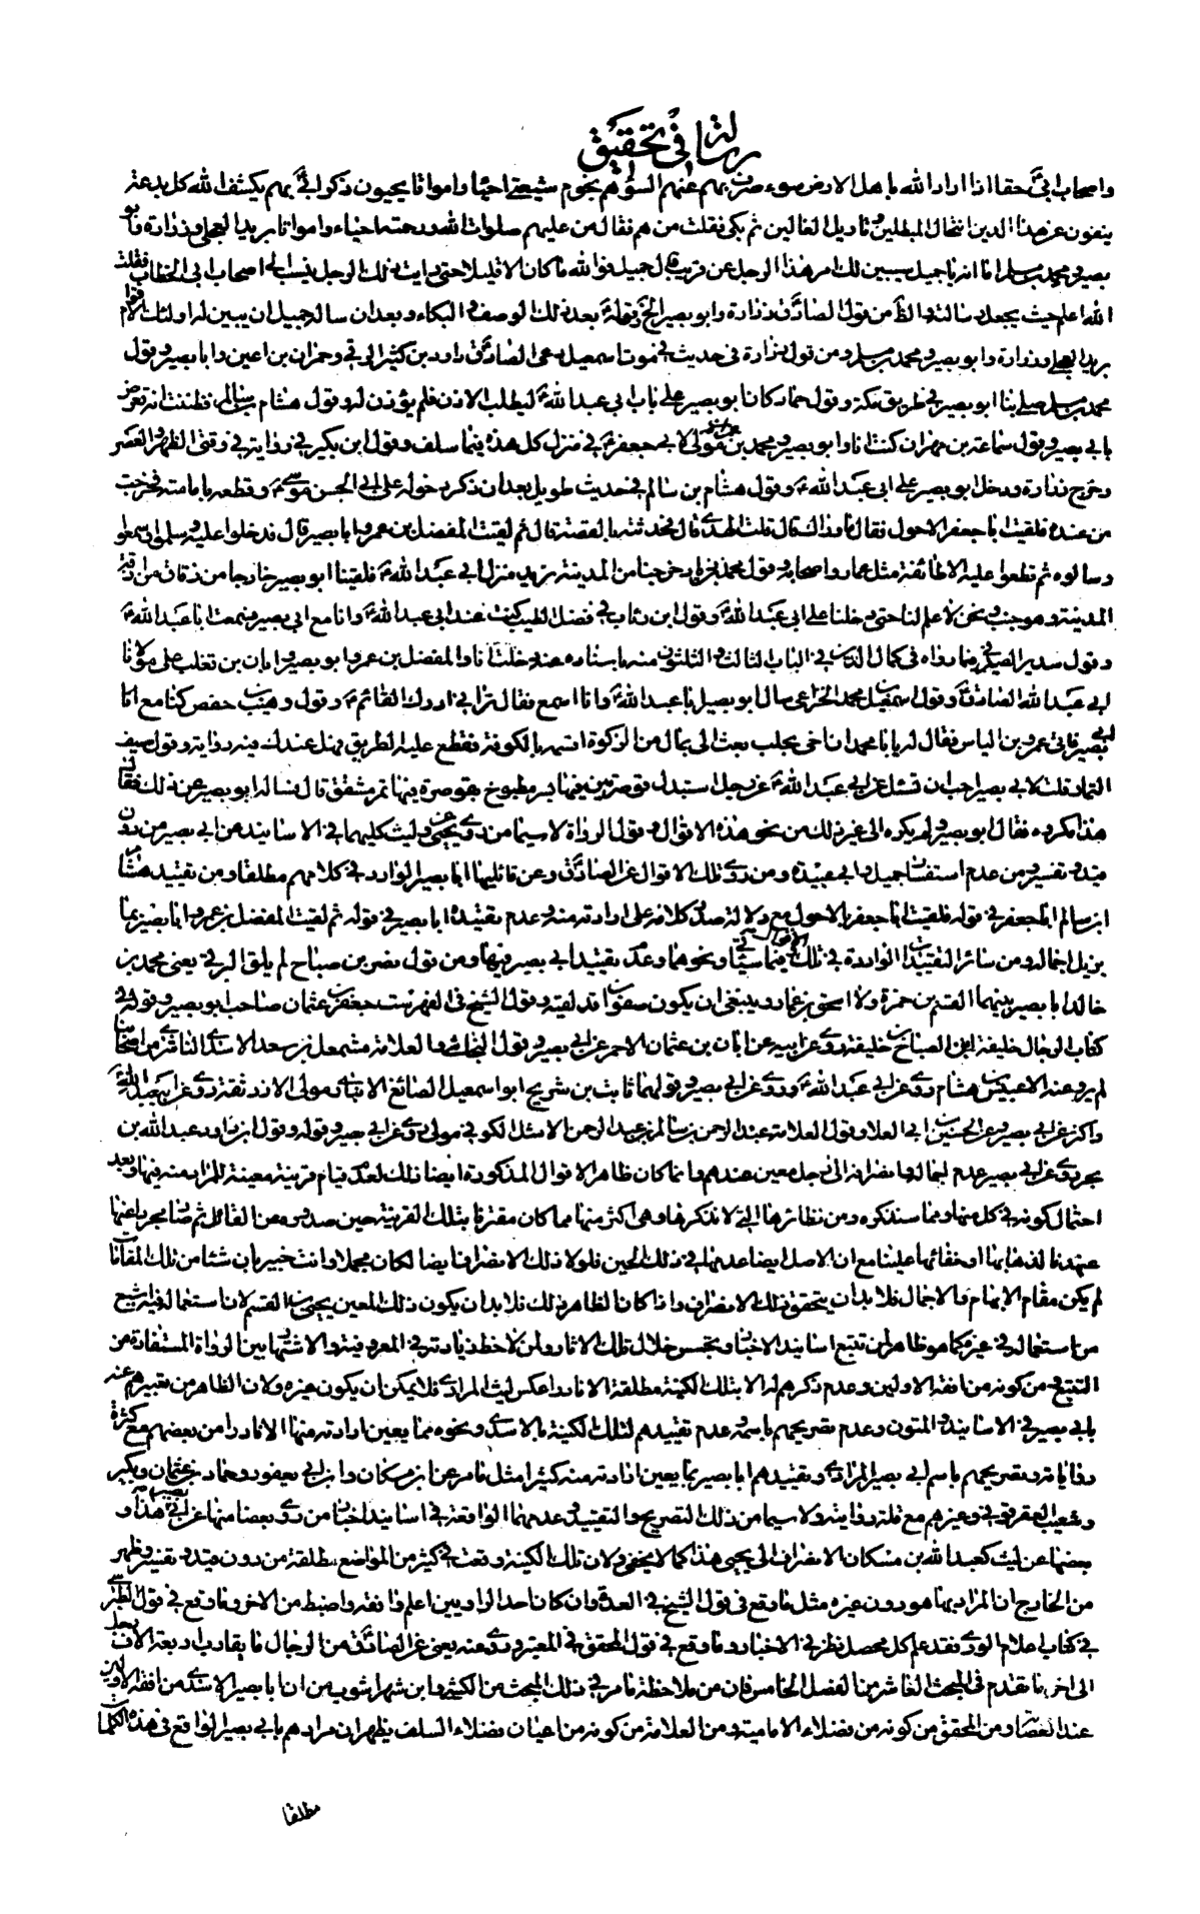 رسالة في تحقيق
واصحاب ابى حقا اذا اراد الله باهل الارض سوء صرف بهم عنهم السوء هم نجوم شيعتى احياء وامواتا يحيون ذكر ابى بهم يكشف الله كل بدعة
ينفون عن هذا الدين انتحال المبطلين وتاويل الغالين ثم بكى فقلت من هم فقال من عليهم صلوات الله ورحمته احياء وامواتا بريد العجلى وزرارة وابو
بصير ومحمد بن مسلم اما انه يا جميل سيبين لك امر هذا الرجل عن قريب قال جميل فوالله ما كان الا قليلا حتى رايت ذلك الرجل ينسب الى اصحاب ابى الخطاب فقلت
الله اعلم حيث يجعل رسالته والظ من قول الصادق زرارة وابو بصير الخ وقوله بعد ذلك الوصف والبكاء وبعد ان ساله جميل ان يبين له اولئك الاقوام
بريد العجلى وزرارة وابو بصير ومحمد بن مسلم ومن قول زرارة فى حديث فى موت اسمعيل دعى الصادق داود بن كثير الرقى وحمران بن اعين وابا بصير وقول
محمد بن مسلم صلى بنا ابو بصير فى طريق مكة وقول حماد كان ابو بصير على باب ابى عبد الله ليطلب الاذن فلم يؤذن له وقول هشام بن سالم فظننت انه تعرض
بابى بصير وقول سماعة بن مهران كنت انا وابو بصير ومحمد بن عمران مولى لابى جعفر فى منزل كل هذه فيما سلف وقول ابن بكير فى رواية فى وقتى الظهر والعصر
وخرج زرارة ودخل ابو بصير على ابى عبد الله وقول هشام بن سالم فى حديث طويل بعد ان ذكر دخوله على ابى الحسن موسى وقطعه بامامته فخرجت
من عنده فلقيت ابا جعفر الاحول فقال ما وراك قال قلت الهدى قال فحدثته بالقصة قال ثم لقيت المفضل بن عمر وابا بصير قال فدخلوا عليه وسلموا وسمعوا
وسالوه ثم قطعوا عليه الا طائفة مثل عمار واصحابه وقول محمد خرجنا من المدينة نريد منزل ابى عبد الله فلقينا ابو بصير خارجا من زقاق من ازقة
المدينة وهو جنب ونحن لا علم لنا حتى دخلنا على ابى عبد الله وقول ابن رئاب فى فضل الطيب كنت عند ابى عبد الله وانا مع ابى بصير فسمعت ابا عبد الله
وقول سدير الصيرفى فيما رواه فى كمال الدين فى الباب الثالث والثلثون منه باسناده عنه دخلت انا والمفضل بن عمر وابو بصير وابان بن تغلب على مولانا
ابى عبد الله الصادق وقول اسمعيل بن محمد الخزاعى سال ابو بصير ابا عبد الله وانا اسمع فقال ترانى ادرك القائم وقول وهيب بن حفص كنا مع ابى
بصير فاتى عمرو بن الياس فقال له يا با محمد ان اخى بحلب بعث الى بمال من الزكوة اقسمه بالكوفة فقطع عليه الطريق فهل عندك فيه رواية وقول سيف
التمار قلت لابى بصير احب ان تسئل عن ابى عبد الله عن رجل استبدل قوصرتين فيهما بسر مطبوخ بقوصرة فيها تمر مشقق قال فساله ابو بصير عن ذلك فقال
هذا مكروه فقال ابو بصير ولم يكره الى غير ذلك من نحو هذه الاقوال وقول الرواة لا سيما من روى عن يحيى وليث كليهما فى الاسانيد عن ابى بصير من دون
قيد وتفسير ومن عدم استفسار جميل وابى عبيدة ومن روى تلك الاقوال عن الصادق وعن قائليها ابا بصير الوارد فى كلامهم مطلقا ومن تقييد هشام
ابن سالم ابا جعفر فى قوله فلقيت ابا جعفر بالاحول مع دلالة صدر كلامه على ارادته منه وعدم تقييده ابا بصير فى قوله ثم لقيت المفضل بن عمر وابا بصير بما
يزيل اجماله ومن سائر التقييدات الواردة فى تلك الاقوال فيما سيأتى ونحوها وعدم تقييد ابى بصير فيها ومن قول نصر بن صباح لم يلق البرقى يعنى محمد بن
خالد ابا بصير بينهما القسم بن حمزة ولا اسحق بن عمار وينبغى ان يكون صفوان قد لقيه وقول الشيخ فى الفهرست جعفر بن عثمان صاحب ابو بصير وقوله فى
كتاب الرجال خليفة ابن الصباح بن خليفة روى عن ابيه عن ابان بن عثمان الاحمر عن ابى بصير وقول النجاشى والعلامة مشمعل بن سعد الاسدى الناشرى من اصحابنا
لم يرو عنه الا عبيس بن هشام روى عن ابى عبد الله وروى عن ابى بصير وقولهما ثابت بن شريح ابو اسمعيل الصائغ الانبارى مولى الازد ثقة روى عن ابى عبد الله
واكثر عن ابى بصير وعن الحسين بن ابى العلا وقول العلامة عبد الرحمن بن سالم بن عبد الرحمن الاشل الكوفى مولى روى عن ابى بصير وقوله وقول ابن داود عبد الله بن
بحر روى عن ابى بصير عدم اجماله وانصرافه الى رجل معين عندهم وانما كان ظاهر الاقوال المذكورة ايضا ذلك لعدم قيام قرينة معينة للمراد منه فيها وبعد
احتمال كونه فى كل منها ومما سنذكره ومن نظائرها التى لا نذكرها وهى اكثر منها مما كان مقترنا بتلك القرينة حين صدوره من القائل ثم ضاعت
عهدنا لذهابها او خفائها علينا مع ان الاصل ايضا عدمها فى ذلك الحين فلولا ذلك الانصراف ايضا لكان مجملا وانت خبير بان شيئا من تلك المقامات
لم يكن مقام الابهام والاجمال فلا بد ان يتحقق ذلك الانصراف واذا كان الظاهر ذلك فلا بد ان يكون ذلك المعين يحيى بن القسم لان استعماله فيه اشيع
من استعماله فى غيره كما هو ظاهر لمن تتبع اسانيد الاخبار وتجسس خلال تلك الاثار ولمن لاحظ زيادته فى المعروفية والاشتهار بين الرواة المستفادة من
التتبع ومن كونه من افقه الاولين وعدم ذكرهم له الا بتلك الكنية مطلقة الا نادرا عكس ليث المرادى فلا يمكن ان يكون غيره ولان الظاهر من تعبيرهم عنه
بابى بصير فى الاسانيد والمتون وعدم تصريحهم باسمه وعدم تقييدهم لتلك الكنية بالاسدى ونحوه مما يعين ارادته منها الا نادرا من بعضهم مع كثرة
رواياته وتصريحهم باسم ابى بصير المرادى وتقييدهم ابا بصير بما يعين ارادته منه كثيرا مثل ما مر عن ابن مسكان وابن ابى يعفور وحماد بن عثمان وبكير
وشعيب العقرقوفى وغيرهم مع قلة رواياته ولا سيما من ذلك التصريح والتقييد وعدمهما الواقعة فى اسانيد اخبار من روى بعضا منها عن ابى بصير هذا و
بعضها عن ليث كعبد الله بن مسكان الانصراف الى يحيى هذا كما لا يخفى ولان تلك الكنية وقعت فى كثير من المواضع مطلقة من دون قيد وتفسير وظهر
من الخارج ان المراد بها هو دون غيره مثل ما وقع فى قول الشيخ فى العدة وان كان احد الراويين اعلم وافقه واضبط من الاخر وما وقع فى قول الطبرسى
فى كتاب اعلام الورى فقد علم كل محصل نظر فى الاخبار وما وقع فى قول المحقق فى المعتبر وروى عنه يعنى عن الصادق من الرجال ما يقارب اربعة الاف رجل
الى اخر ما تقدم فى المبحث العاشر من الفصل الخامس فان من ملاحظة ما مر فى ذلك المبحث من الكشى وابن شهراشوب من ان ابا بصير الاسدى من افقه الاولين
عند العصابة ومن المحقق من كونه من فضلاء الامامية ومن العلامة من كونه من اعيان فضلاء السلف يظهر ان مرادهم بابى بصير الواقع فى هذه الكلمات
مطلقا